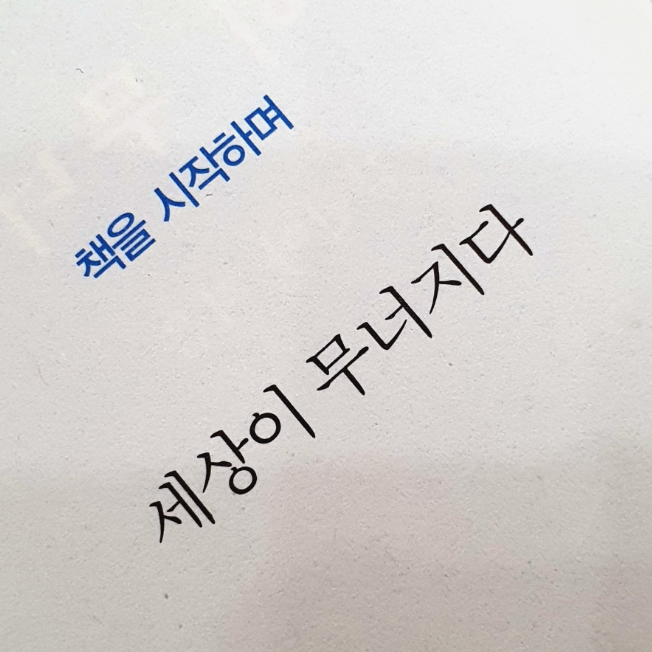 책을 시작하며
세상이 무너지다